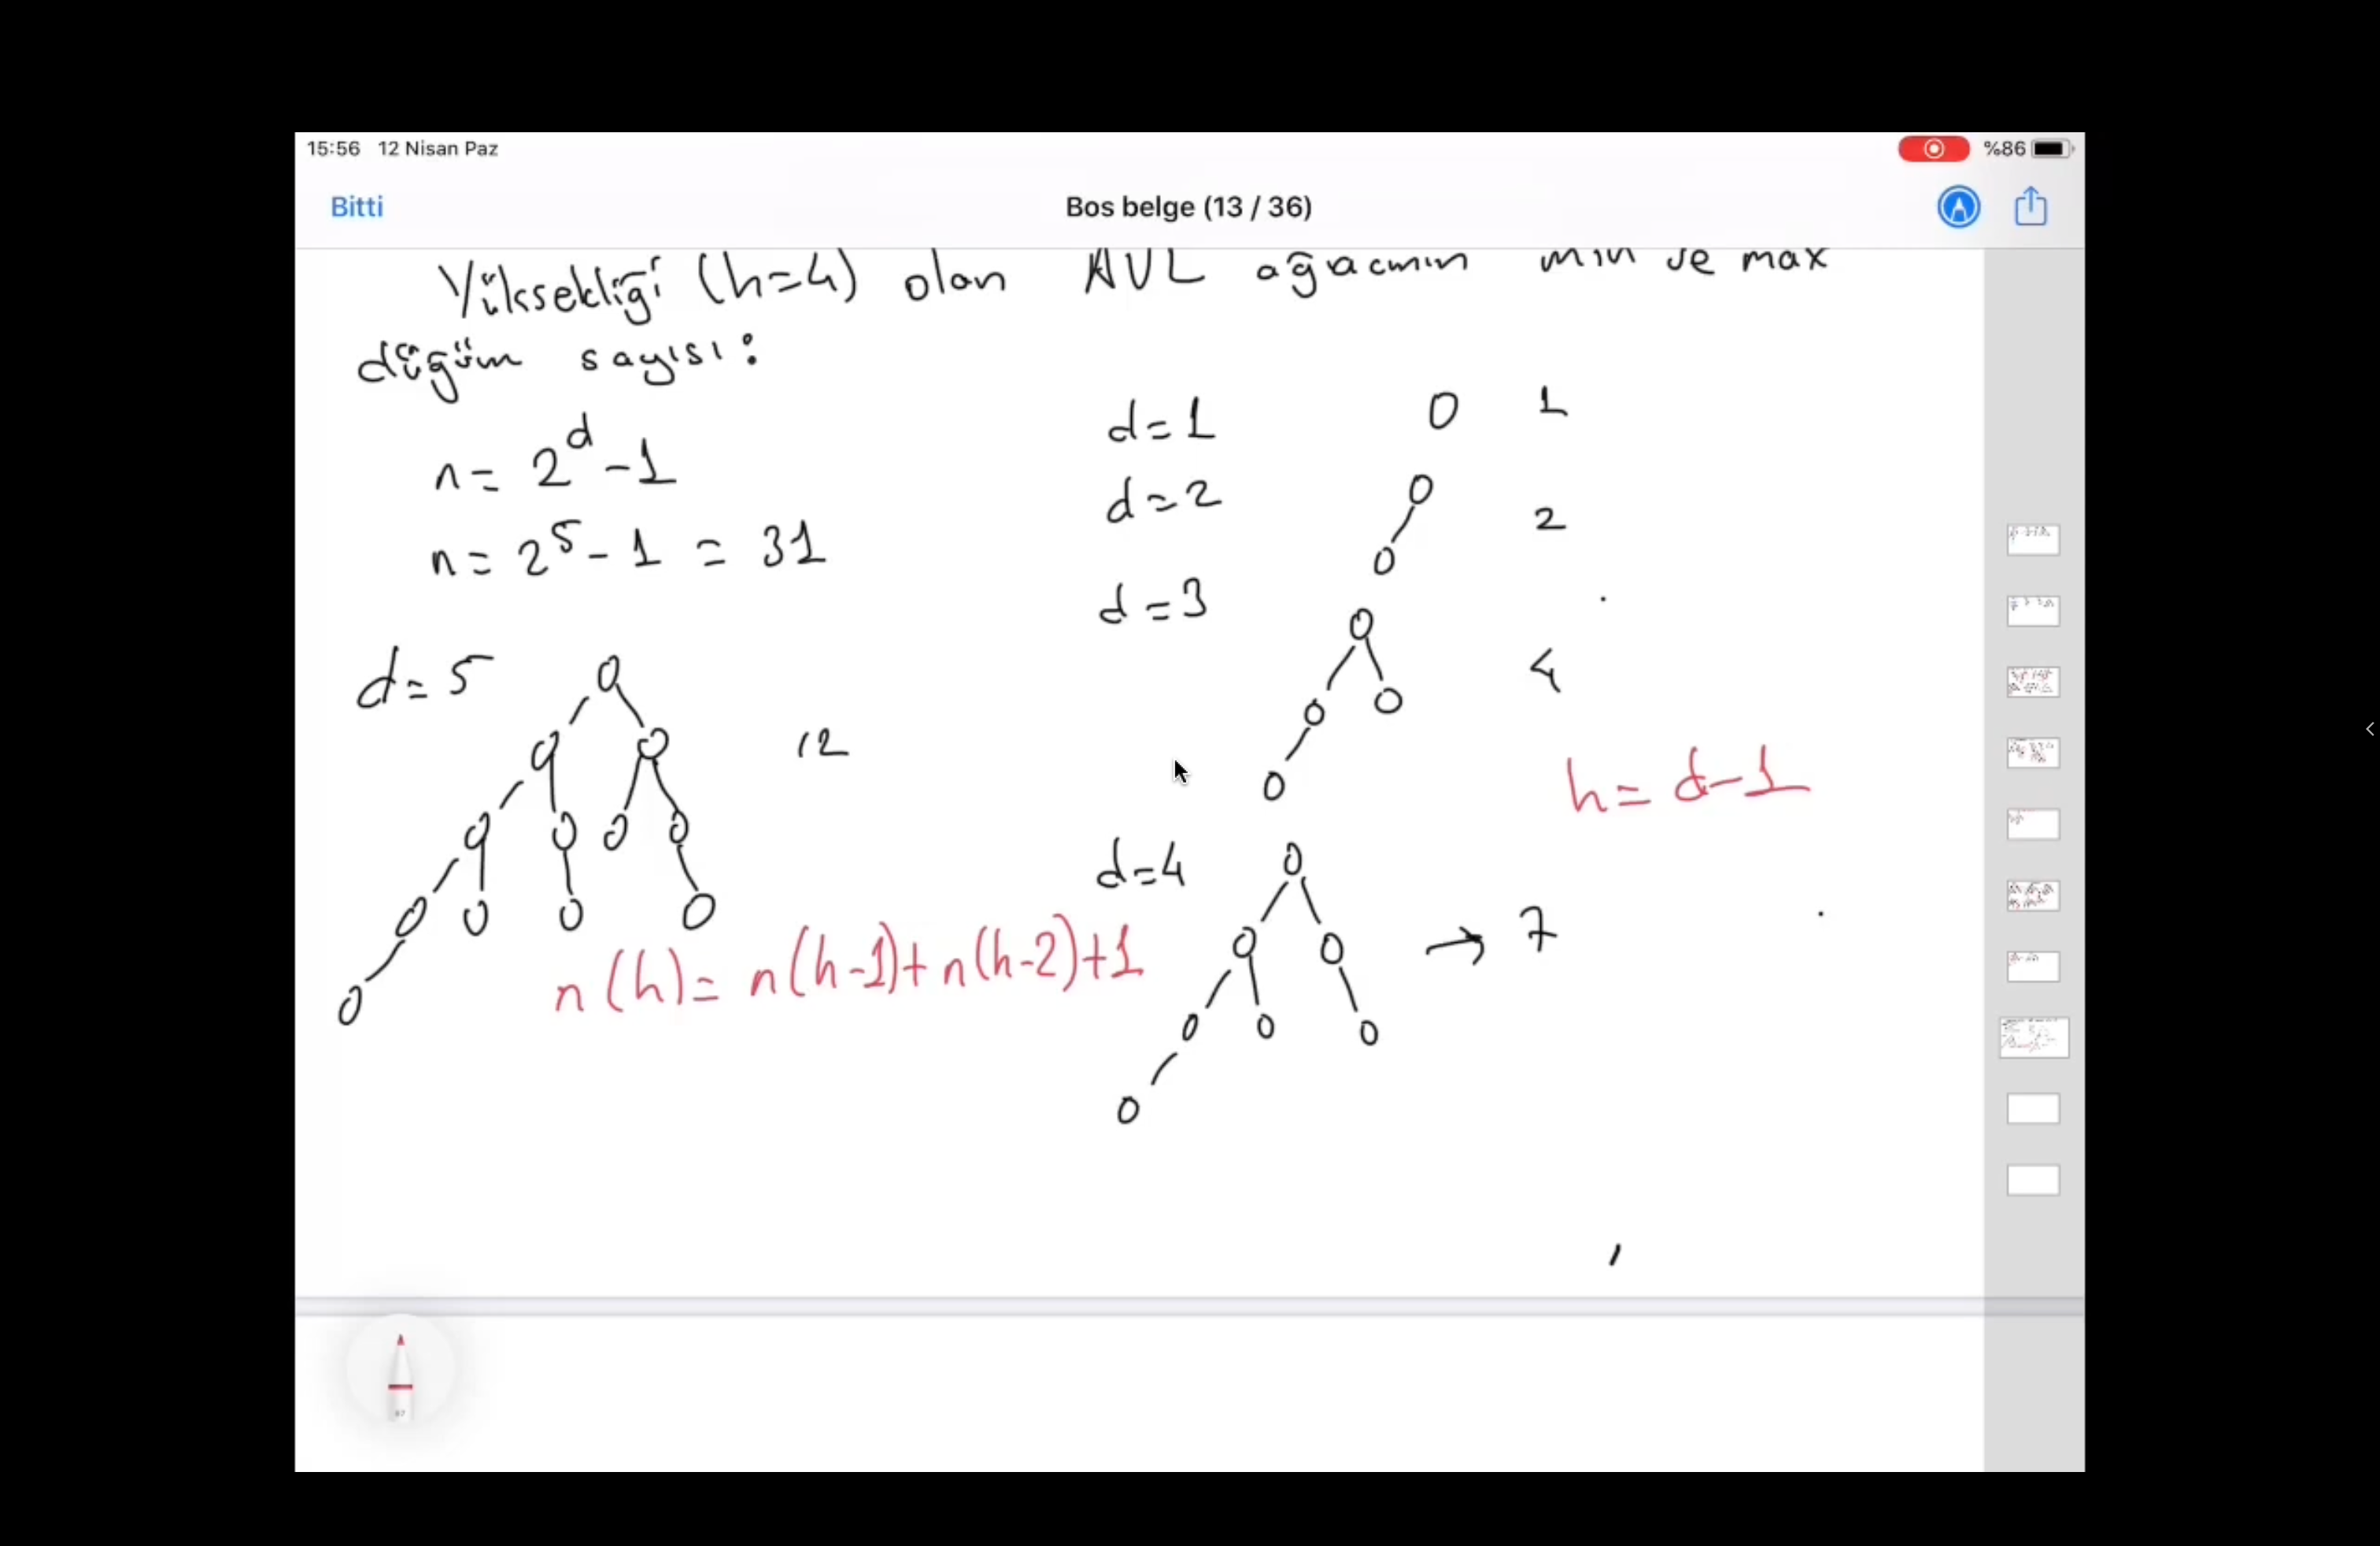 15:56 12 Nisan Paz
%86
Bitti
Bos belge (13 / 36)
Yüksekliği (h=4) olan AVL ağacının min ve max
düğüm sayısı:
n= 2^d -1
n= 2^5 - 1 = 31
d=1
1
d=2
2
d=3
4
h= d-1
d= 5
12
d=4
→ 7
n(h)= n(h-1)+n(h-2)+1